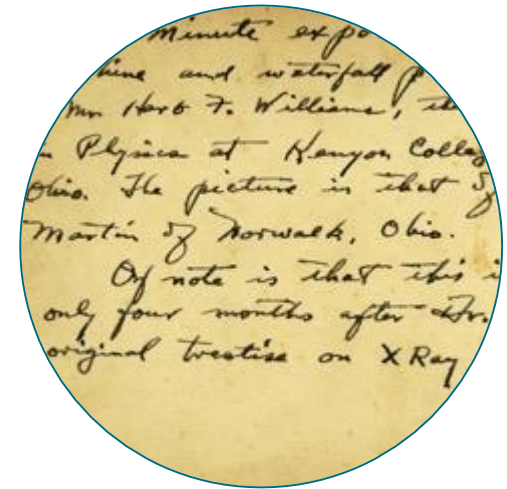 Minute expo
and waterfall p
Mr Herb F. Williams, the
Physics at Kenyon Colleg
Ohio. The picture is that of
Martin of Norwalk, Ohio.
Of note is that this i
only four months after Dr.
original treatise on X Ray